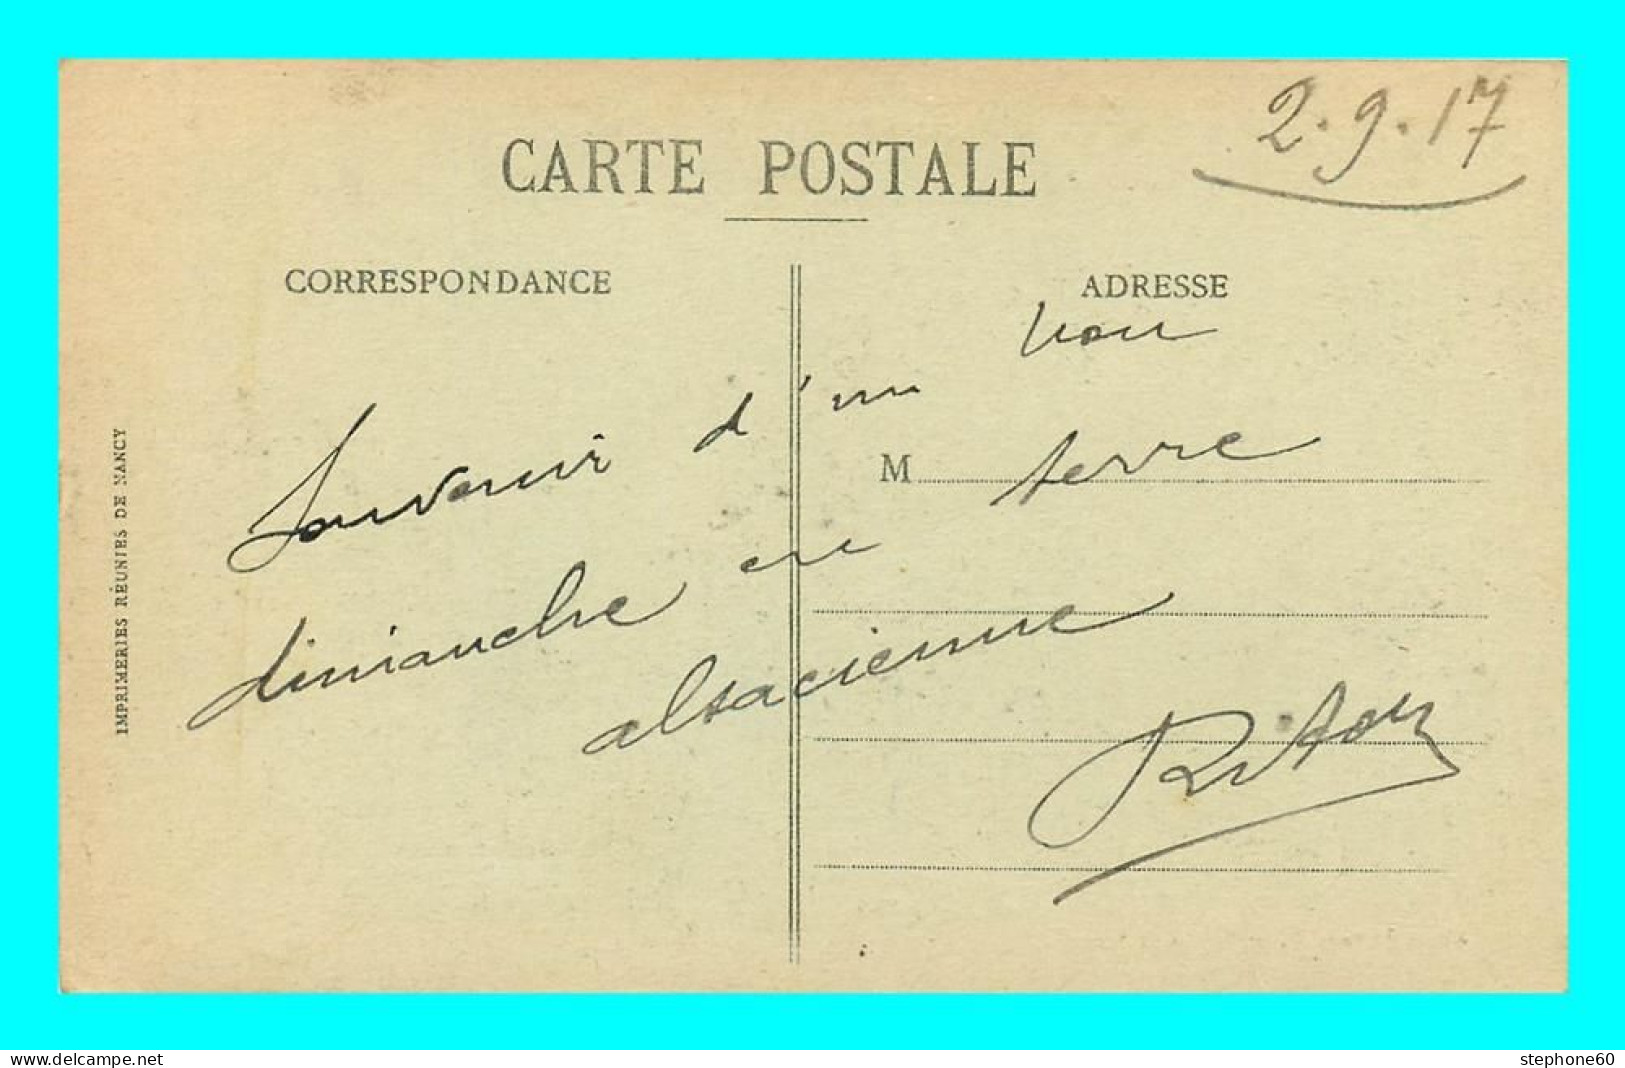 2.9.17
CARTE POSTALE
CORRESPONDANCE
ADRESSE
Souvenir d'un bon
M
dimanche en terre
alsacienne
IMPRIMERIES RÉUNIES DE NANCY
www.delcampe.net
stephone60